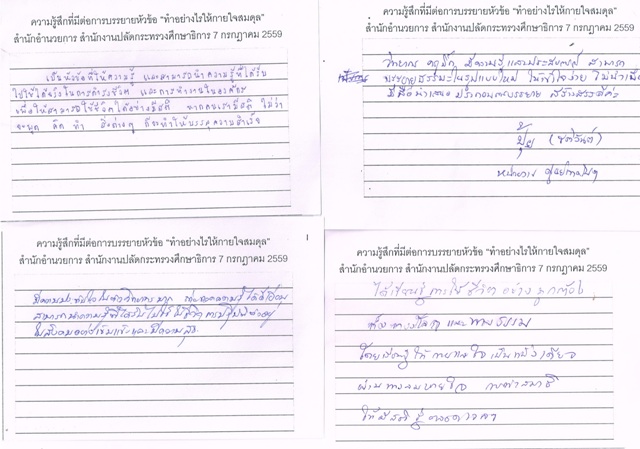 ความรู้สึกที่มีต่อการบรรยายหัวข้อ "ทำอย่างไรให้กายใจสมดุล"
สำนักอำนวยการ สำนักงานปลัดกระทรวงศึกษาธิการ 7 กรกฎาคม 2559
เป็นหัวข้อที่ให้ความรู้ และสามารถนำความรู้ที่ได้รับ
ไปใช้ได้จริงในการดำรงชีวิต และการทำงานในองค์กร
เพื่อให้สามารถใช้ชีวิตได้อย่างมีสติ หากคนเรามีสติ ไม่ว่า
จะพูด คิด ทำ สิ่งต่างๆ ก็จะทำให้บรรลุความสำเร็จ
ความรู้สึกที่มีต่อการบรรยายหัวข้อ "ทำอย่างไรให้กายใจสมดุล"
สำนักอำนวยการ สำนักงานปลัดกระทรวงศึกษาธิการ 7 กรกฎาคม 2559
มีความรู้และประสบการณ์ สามารถ
บรรยายธรรมะในรูปแบบใหม่ ให้เข้าใจง่าย ไม่น่าเบื่อ
มีสื่อนำเสนอ ประกอบการบรรยาย สร้างสรรค์ค่ะ
ความรู้สึกที่มีต่อการบรรยายหัวข้อ "ทำอย่างไรให้กายใจสมดุล"
สำนักอำนวยการ สำนักงานปลัดกระทรวงศึกษาธิการ 7 กรกฎาคม 2559
มีความประทับใจในตัววิทยากรมาก ถ่ายทอดความรู้ได้ดีเยี่ยม
สามารถนำความรู้ที่ได้รับไปใช้
ในสังคมอย่างเข้มแข็งและมีความสุข
ความรู้สึกที่มีต่อการบรรยายหัวข้อ "ทำอย่างไรให้กายใจสมดุล"
สำนักอำนวยการ สำนักงานปลัดกระทรวงศึกษาธิการ 7 กรกฎาคม 2559
ได้เรียนรู้การใช้ชีวิตอย่างถูกต้อง
ทั้งทางโลก และทางธรรม
โดยเรียนรู้ให้กายและใจเป็นหนึ่งเดียว
ผ่านทางลมหายใจ การทำสมาธิ
ให้มีสติรู้ตลอดเวลา